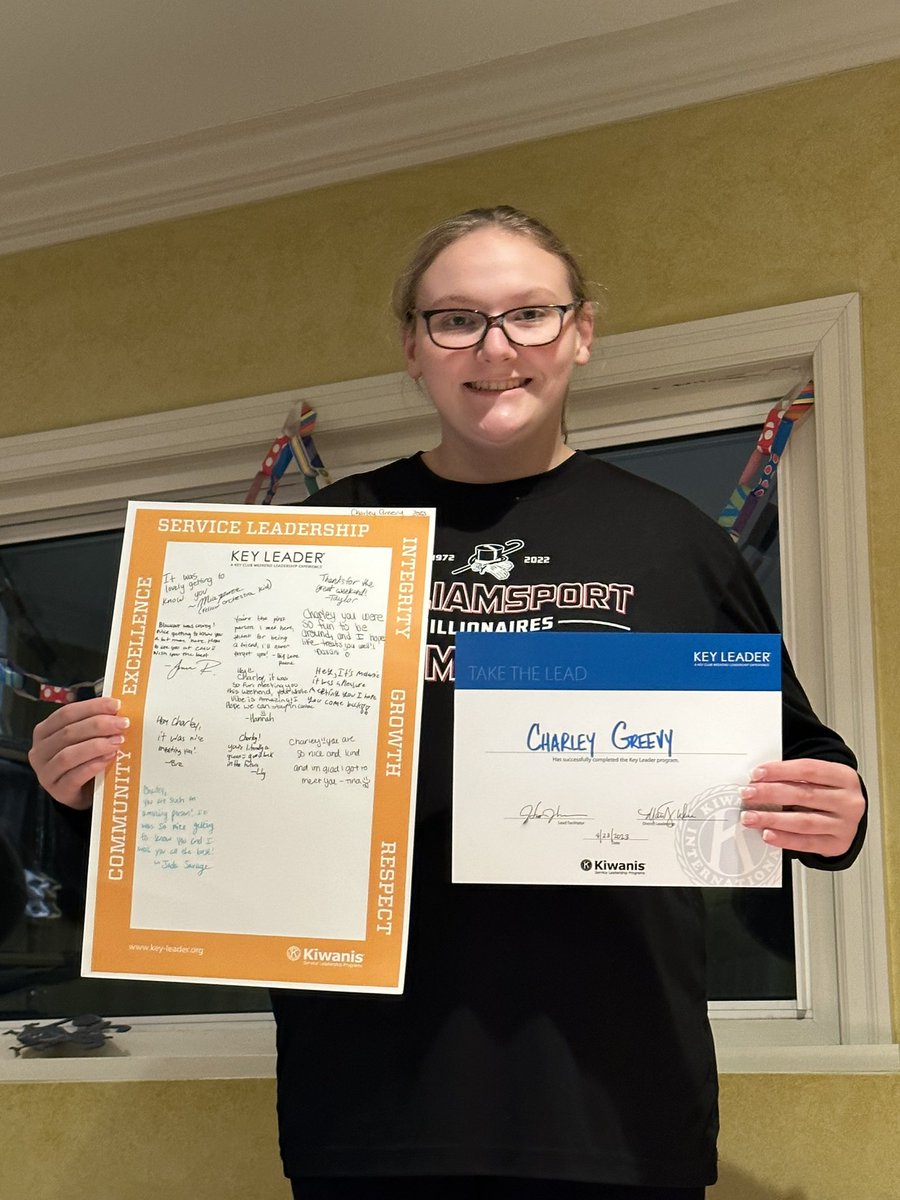 Charley Greevy 2023
SERVICE LEADERSHIP
EXCELLENCE
COMMUNITY
INTEGRITY
GROWTH
RESPECT
KEY LEADER
A KEY CLUB WEEKEND LEADERSHIP EXPERIENCE
It was
lovely getting to
know you
(fellow orchestra kid)
Thanks for the
great weekend!
-Taylor
Nice getting to know you
with you the best
You're the first
person I met here,
thank for being
a friend, I'll never
forget you!
Charley you were
so fun to be
around, and I hope
life treats you well!
Charley, it was
so fun meeting you
this weekend, your whole
vibe is amazing!
Hope we can stay in contact
-Hannah
it was a pleasure
Hey Charley,
it was nice
meeting you!
Charley!
you're literally a
in the future
-Lily
Charley!! you are
so nice and kind
and im glad i got to
meet you -tina
you are such an
amazing person! It
was so nice getting
to know you and I
wish you all the best!
- Jade Savage
www.key-leader.org
Kiwanis
Service Leadership Programs
1972 2022
LIAMSPORT
ILLIONAIRES
KEY LEADER
A KEY CLUB WEEKEND LEADERSHIP EXPERIENCE
TAKE THE LEAD
CHARLEY GREEVY
Has successfully completed the Key Leader program.
Lead Facilitator
4/23/2023
Date
Kiwanis
Service Leadership Programs
KIWANIS
INTERNATIONAL